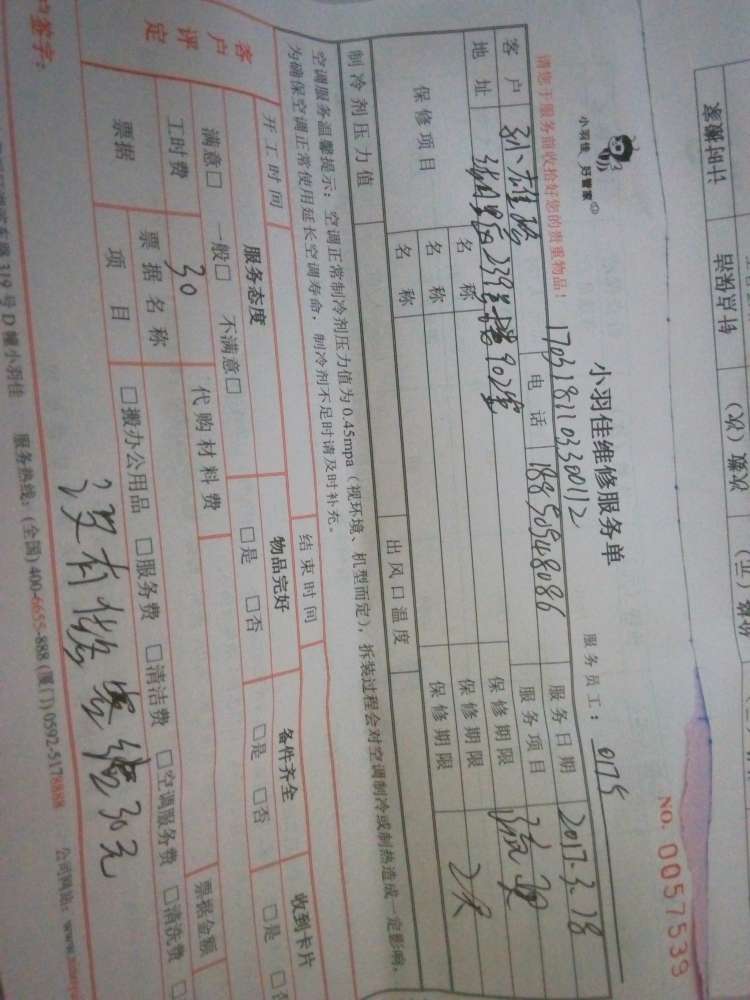 计时搬家
针点密品
次数（次）
NO. 0057539
小羽佳 好管家
小羽佳维修服务单
服务员工： 0175
请您于服务前收拾好您的贵重物品！
1703181103300112
客户
电话 18850548086
服务日期 2017.3.18
地址 239 902室
服务项目
保修项目
名称
保修期限
名称
保修期限 2天
名称
保修期限
制冷剂压力值
出风口温度
空调服务温馨提示：空调正常制冷剂压力值为0.45mpa（视环境、机型而定），拆装过程会对空调制冷或制热造成一定影响，
为确保空调正常使用延长空调寿命，制冷剂不足时请及时补充。
开工时间
结束时间
客户评定
服务态度
物品完好
备件齐全
收到卡片
满意□ 一般□ 不满意□
□是 □否
□是 □否
□是
工时费 30
代购材料费
票据金额
票据
票据名称
项目
□搬办公用品 □服务费 □清洁费 □空调服务费 □清洗费 □
没有 30元
签字：
319号D幢小羽佳 服务热线：（全国）400-6655-888（厦门）0592-5178888 公司网站：www.